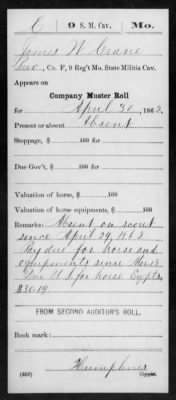 C 9 S. M. Cav. Mo.
James W Crane
Co. F, 9 Reg't Mo. State Militia Cav.
Appears on
Company Muster Roll
for April 30, 1862.
Present or absent Absent
Stoppage, $ 100 for
Due Gov't, $ 100 for
Valuation of horse, $ 100
Valuation of horse equipments, $ 100
Remarks: Absent on scout
since April 29, 1862
Pay due for horse and
equipments since
Due U S for horse Eqpts
$30.19.
FROM SECOND AUDITOR'S ROLL.
Book mark:
Humphries
(859) Copyist.